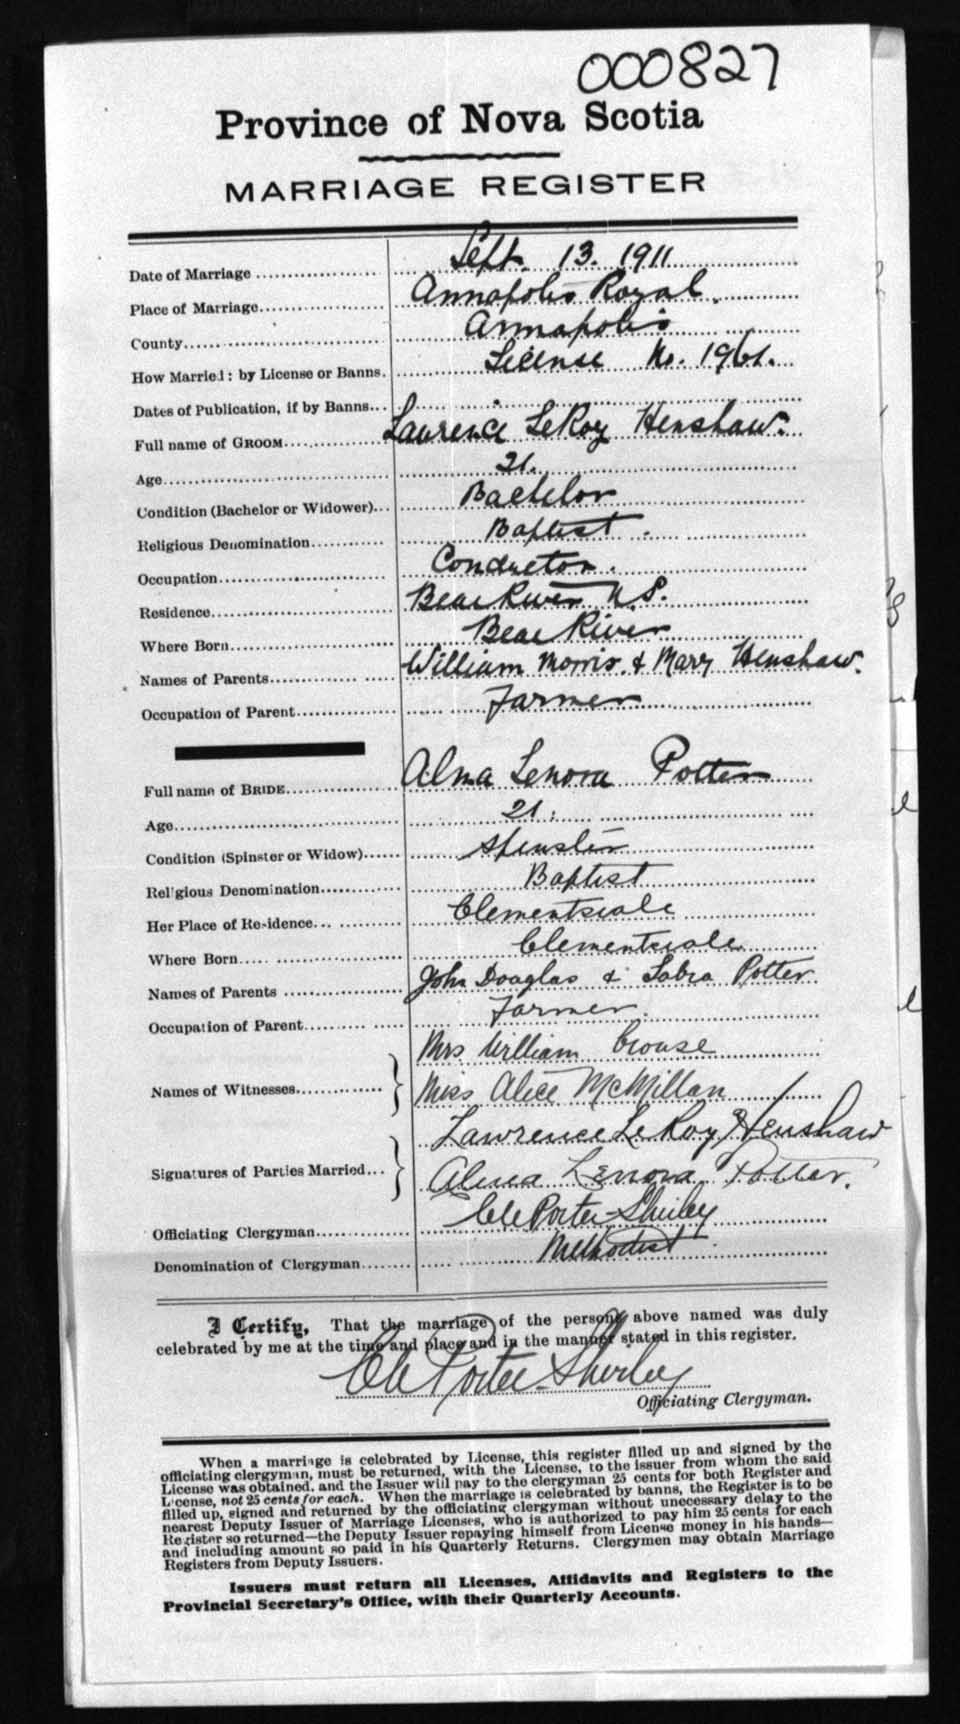 000827
Province of Nova Scotia
MARRIAGE REGISTER
Date of Marriage Sept. 13. 1911
Place of Marriage Annapolis Royal.
County Annapolis
How Married: by License or Banns. License No. 1961.
Dates of Publication, if by Banns
Full name of GROOM Lawrence LeRoy Henshaw.
Age 21.
Condition (Bachelor or Widower) Bachelor
Religious Denomination Baptist.
Occupation Conductor.
Residence Bear River N.S.
Where Born Bear River
Names of Parents William Morris. & Mary Henshaw.
Occupation of Parent Farmer
Full name of BRIDE Alma Lenora Potter
Age 21.
Condition (Spinster or Widow) Spinster
Religious Denomination Baptist
Her Place of Residence Clementsvale
Where Born Clementsvale
Names of Parents John Douglas & Sabra Potter
Occupation of Parent Farmer.
Mrs William Crouse
Names of Witnesses
Miss Alice McMillan
Lawrence LeRoy Henshaw
Signatures of Parties Married
Alma Lenora Potter.
Officiating Clergyman Porter-Shirley
Denomination of Clergyman Methodist
I Certify, That the marriage of the persons above named was duly
celebrated by me at the time and place and in the manner stated in this register.
Porter-Shirley
Officiating Clergyman.
When a marriage is celebrated by License, this register filled up and signed by the
officiating clergyman, must be returned, with the License, to the issuer from whom the said
License was obtained, and the Issuer will pay to the clergyman 25 cents for both Register and
License, not 25 cents for each. When the marriage is celebrated by banns, the Register is to be
filled up, signed and returned by the officiating clergyman without unnecessary delay to the
nearest Deputy Issuer of Marriage Licenses, who is authorized to pay him 25 cents for each
Register so returned—the Deputy Issuer repaying himself from License money in his hands—
and including amount so paid in his Quarterly Returns. Clergymen may obtain Marriage
Registers from Deputy Issuers.
Issuers must return all Licenses, Affidavits and Registers to the
Provincial Secretary's Office, with their Quarterly Accounts.